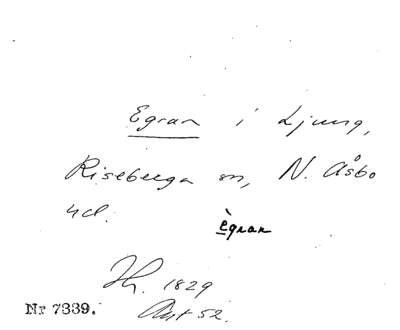 Egran i Ljung,
Riseberga sn, N. Åsbo
hd.
ègran
1829
Nr 7339. Akt 52.